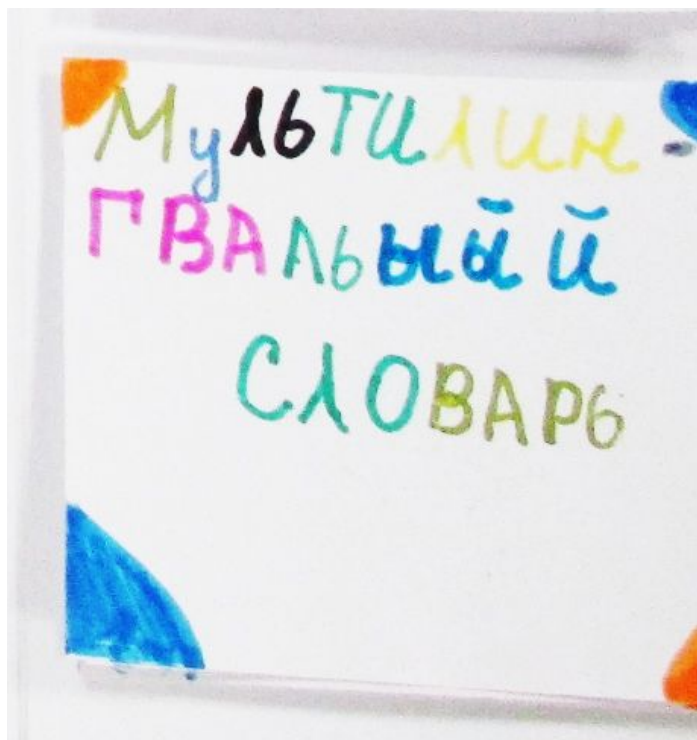 Мультилин-
ГВАльыйй
СЛОВАРЬ